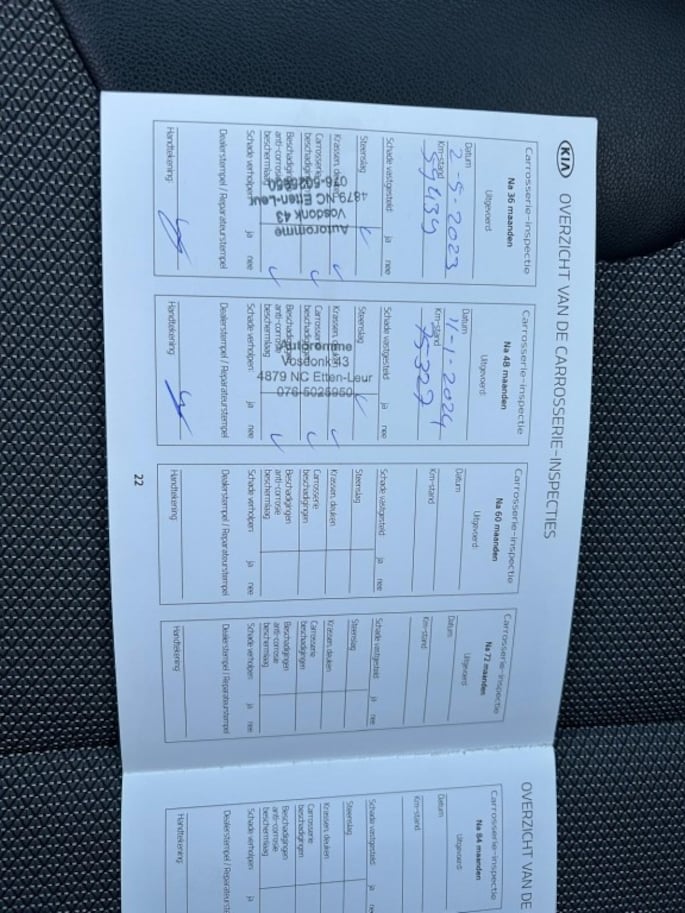 KIA OVERZICHT VAN DE CARROSSERIE-INSPECTIES
Carrosserie-inspectie
Na 36 maanden
Uitgevoerd:
Datum 2-5-2023
Km-stand 59439
Schade vastgesteld: ja nee
Steenslag
Krassen, deuken
Carrosserie
beschadigingen
Beschadigingen
anti-corrosie
beschermlaag
Schade verholpen: ja nee
Autoromme
Vosdonk 43
4879 NC Etten-Leur
076-5025950
Dealerstempel / Reparateurstempel
Handtekening
Carrosserie-inspectie
Na 48 maanden
Uitgevoerd:
Datum 11-1-2024
Km-stand 75327
Schade vastgesteld: ja nee
Steenslag
Krassen, deuken
Carrosserie
beschadigingen
Beschadigingen
anti-corrosie
beschermlaag
Schade verholpen: ja nee
Autoromme
Vosdonk 43
4879 NC Etten-Leur
076-5025950
Dealerstempel / Reparateurstempel
Handtekening
Carrosserie-inspectie
Na 60 maanden
Uitgevoerd:
Datum
Km-stand
Schade vastgesteld: ja nee
Steenslag
Krassen, deuken
Carrosserie
beschadigingen
Beschadigingen
anti-corrosie
beschermlaag
Schade verholpen: ja nee
Dealerstempel / Reparateurstempel
Handtekening
Carrosserie-inspectie
Na 72 maanden
Uitgevoerd:
Datum
Km-stand
Schade vastgesteld: ja nee
Steenslag
Krassen, deuken
Carrosserie
beschadigingen
Beschadigingen
anti-corrosie
beschermlaag
Schade verholpen: ja nee
Dealerstempel / Reparateurstempel
Handtekening
22
OVERZICHT VAN DE
Carrosserie-inspectie
Na 84 maanden
Uitgevoerd:
Datum
Km-stand
Schade vastgesteld: ja
Steenslag
Krassen, deuken
Carrosserie
beschadigingen
Beschadigingen
anti-corrosie
beschermlaag
Schade verholpen: ja
Dealerstempel / Reparateurstempel
Handtekening